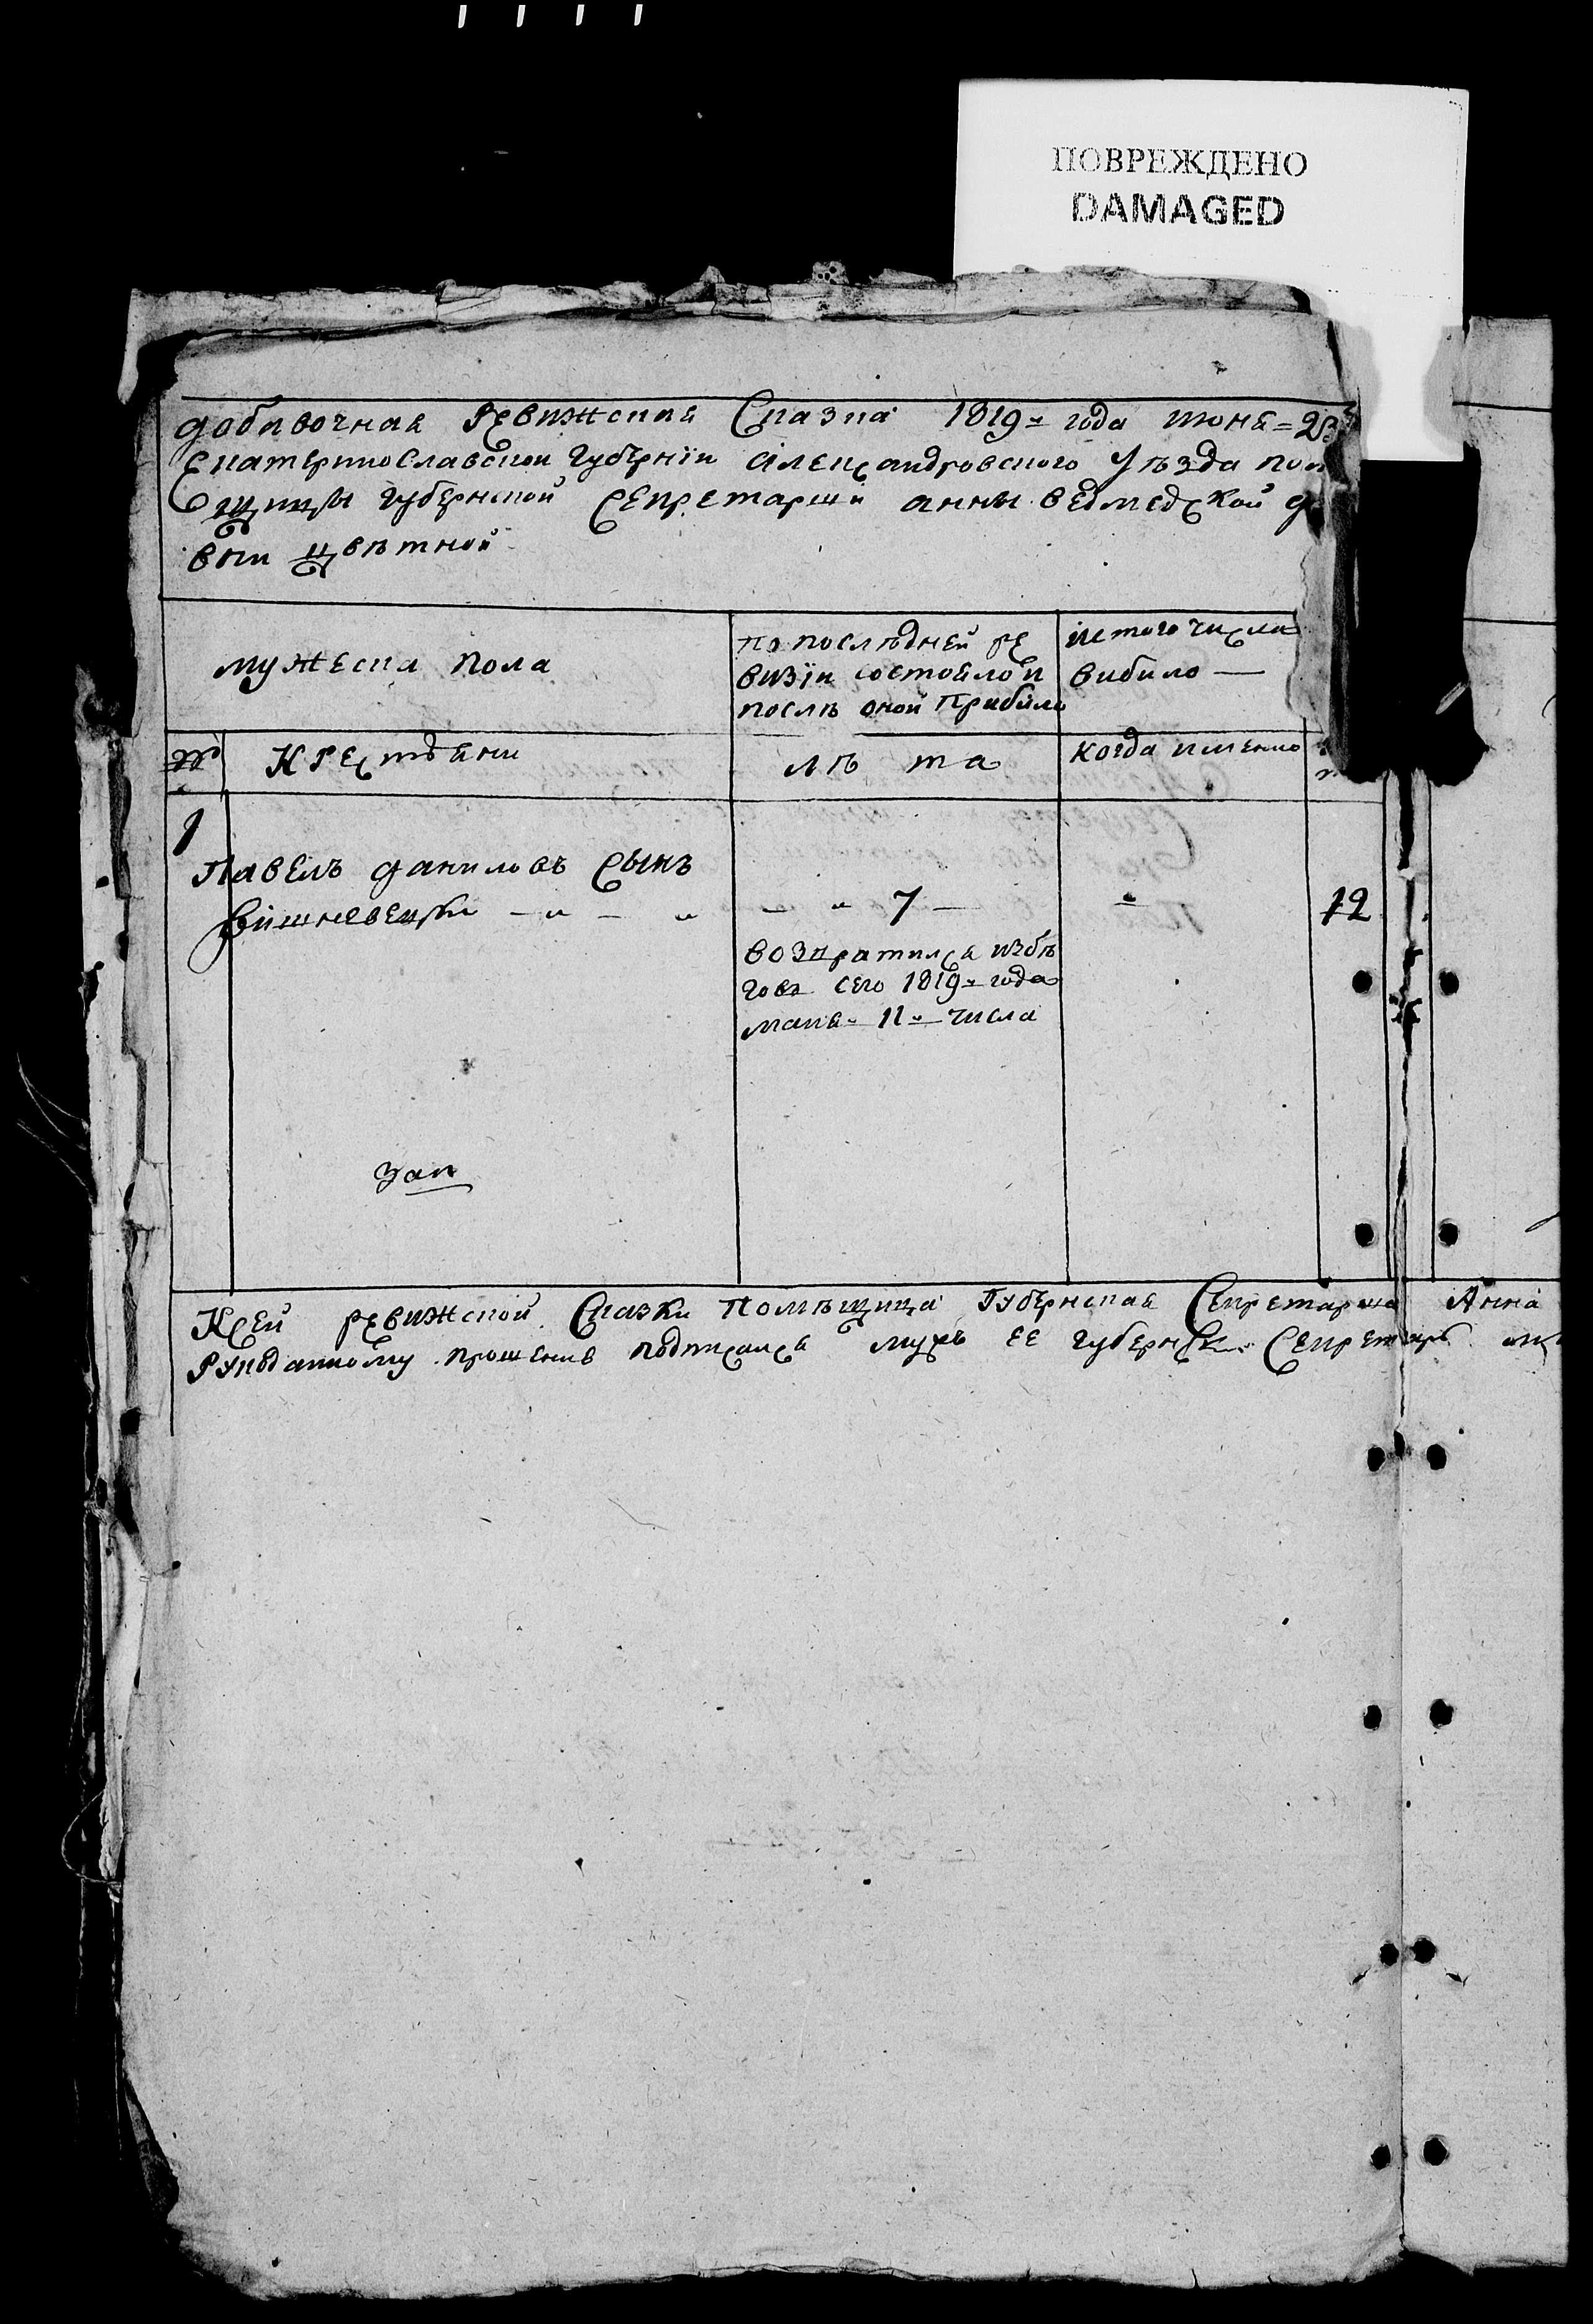 ПОВРЕЖДЕНО
DAMAGED
добавочная Ревижская Сказка 1819го года июня
Екатеринославской губернїи Александровского Уѣзда пом
щицы губернской Секретарши анны ведмедской де
вни Цвѣтной
мужеска пола
по послѣдней ре
визїи состояло и
послѣ оной Прибило
ис того числа
вибило —
№
Крестяни
лѣта
когда именно
1
Павелъ даниловъ сынъ
Вишневецки
7
12
возвратился избѣ
говъ сего 1819го года
маия 11го числа
К сей ревижской Сказки Помѣщица Губернская Секретарша Анна
Рукоданному прошению подписался мужъ ее губернски Секретарь